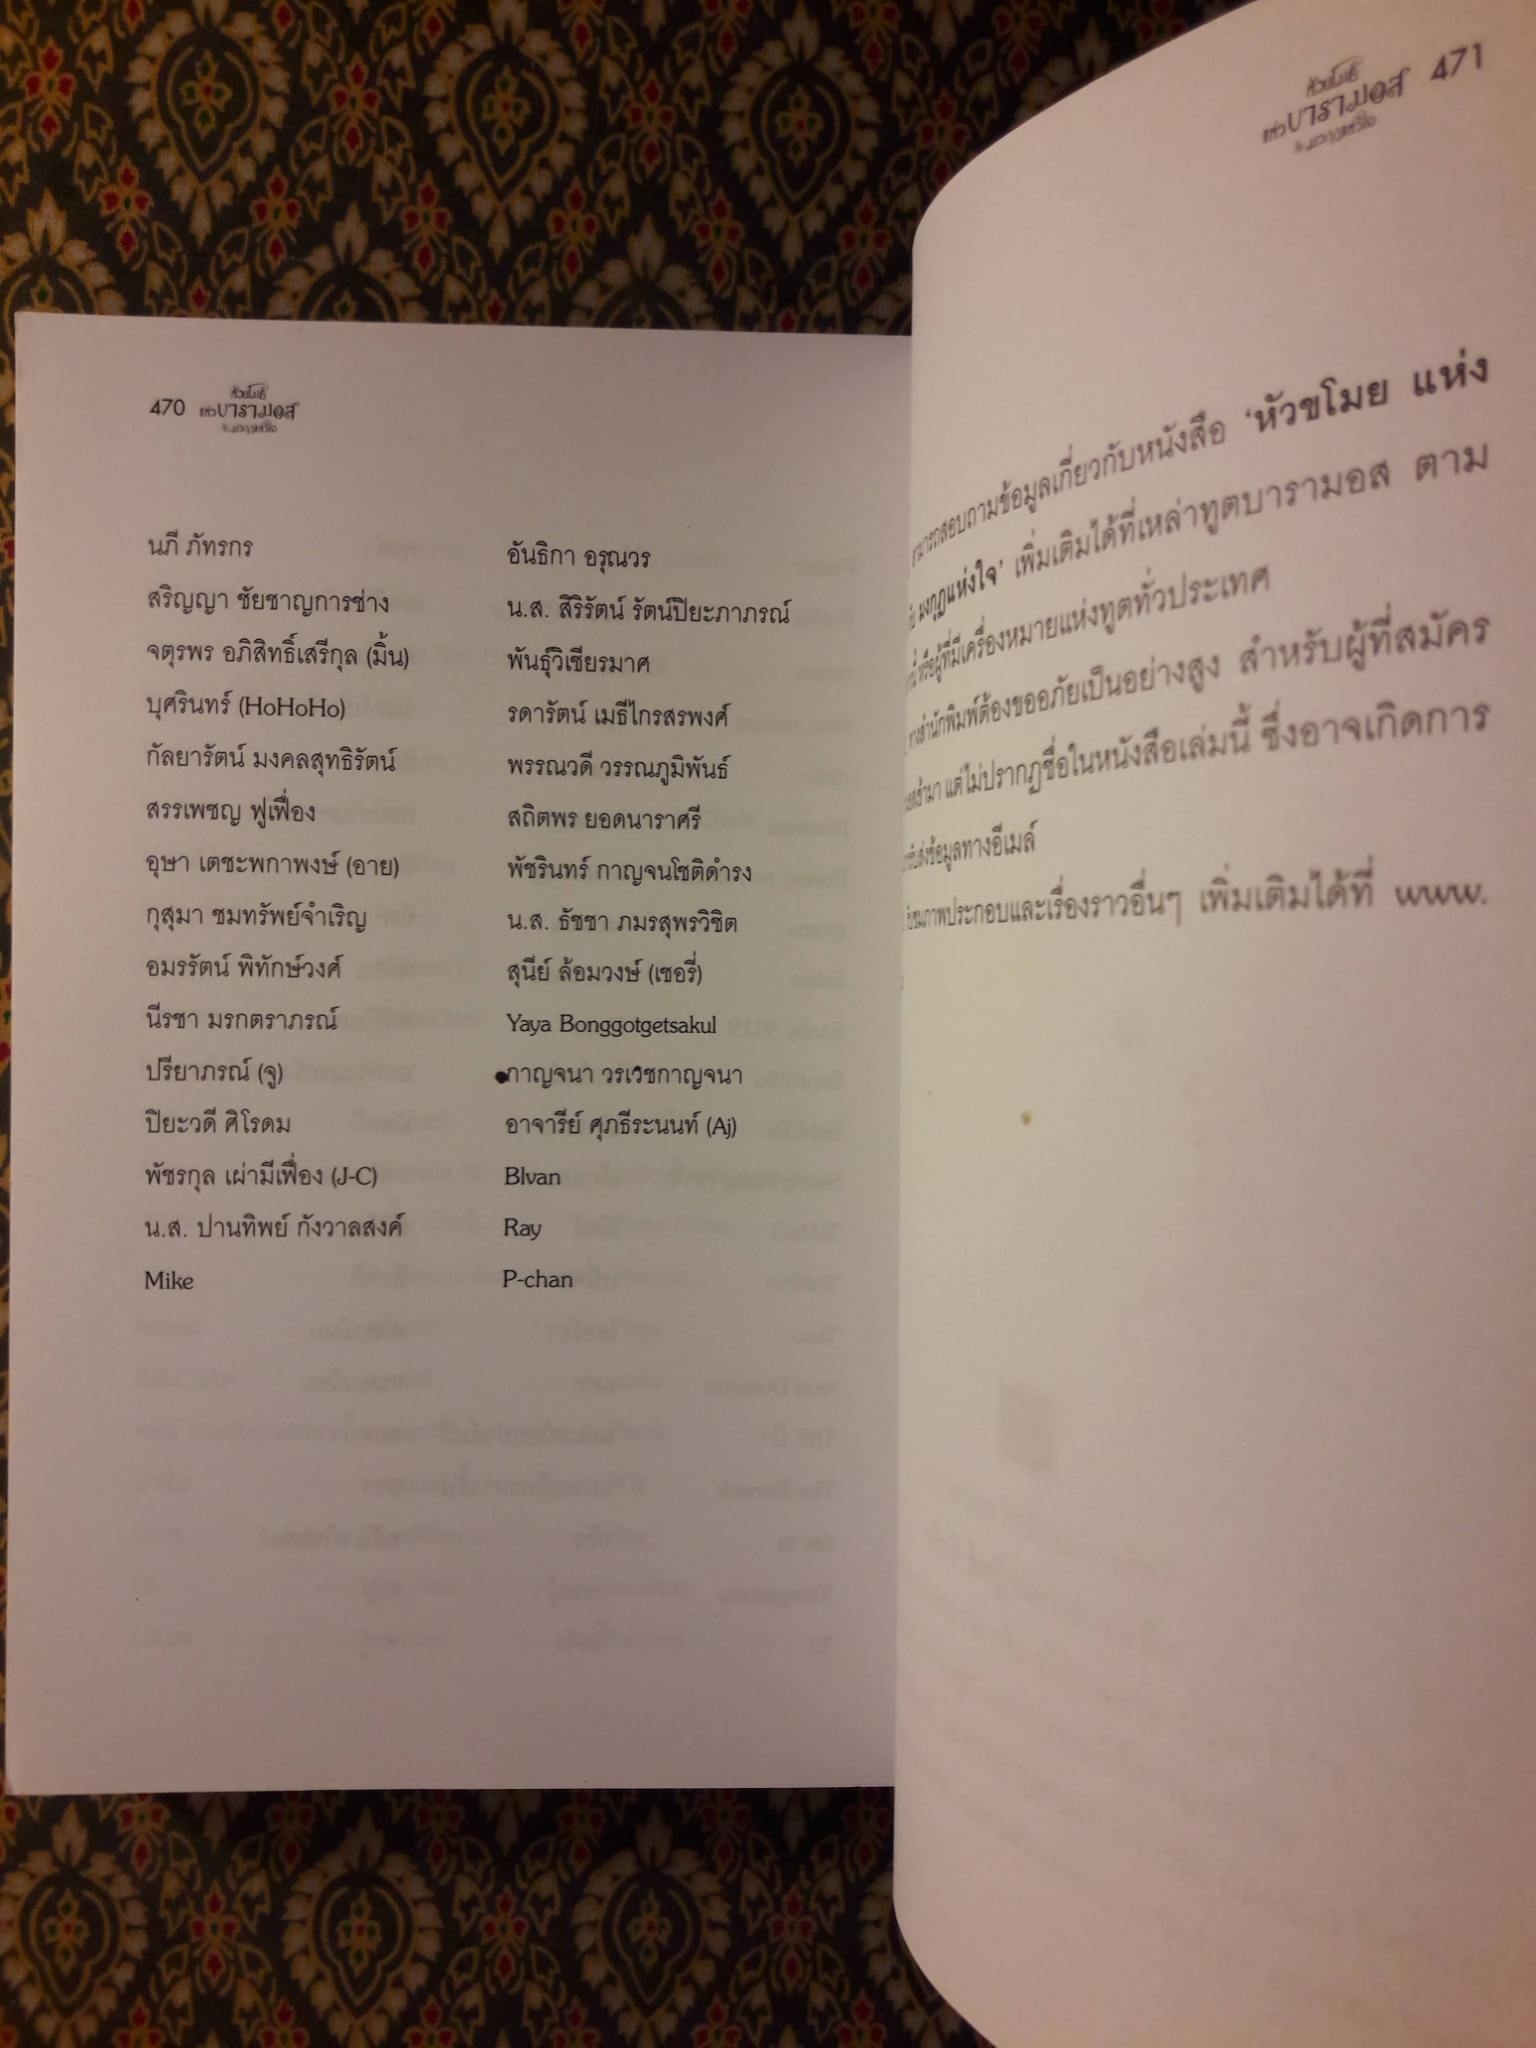 470
หัวขโมย
แห่งบารามอส
นภี ภัทรกร
สริญญา ชัยชาญการช่าง
จตุรพร อภิสิทธิ์เสรีกุล (มิ้น)
บุศรินทร์ (HoHoHo)
กัลยารัตน์ มงคลสุทธิรัตน์
สรรเพชญ ฟูเฟื่อง
อุษา เตชะพกาพงษ์ (อาย)
กุสุมา ชมทรัพย์จำเริญ
อมรรัตน์ พิทักษ์วงศ์
นีรชา มรกตราภรณ์
ปรียาภรณ์ (จู)
ปิยะวดี ศิโรดม
พัชรกุล เผ่ามีเฟื่อง (J-C)
น.ส. ปานทิพย์ กังวาลสงค์
Mike
อันธิกา อรุณวร
น.ส. สิริรัตน์ รัตน์ปิยะภาภรณ์
พันธุ์วิเชียรมาศ
รดารัตน์ เมธีไกรสรพงศ์
พรรณวดี วรรณภูมิพันธ์
สถิตพร ยอดนาราศรี
พัชรินทร์ กาญจนโชติดำรง
น.ส. ธัชชา ภมรสุพรวิชิต
สุนีย์ ล้อมวงษ์ (เชอรี่)
Yaya Bonggotgetsakul
กาญจนา วรเวชกาญจนา
อาจารีย์ ศุภธีระนนท์ (Aj)
Blvan
Ray
P-chan
471
หัวขโมย
แห่งบารามอส
สอบถามข้อมูลเกี่ยวกับหนังสือ 'หัวขโมย แห่ง
มงกุฎแห่งใจ' เพิ่มเติมได้ที่เหล่าทูตบารามอส ตาม
หรือผู้ที่มีเครื่องหมายแห่งทูตทั่วประเทศ
ทางสำนักพิมพ์ต้องขออภัยเป็นอย่างสูง สำหรับผู้ที่สมัคร
แต่ไม่ปรากฏชื่อในหนังสือเล่มนี้ ซึ่งอาจเกิดการ
ข้อมูลทางอีเมล์
ชมภาพประกอบและเรื่องราวอื่นๆ เพิ่มเติมได้ที่ www.